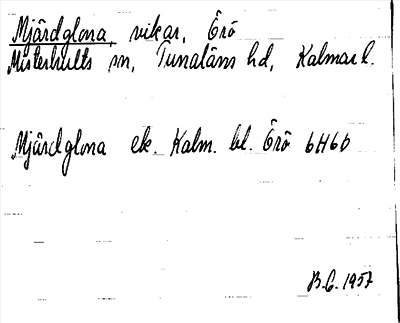 Mjärdglona, vikar, Örö
Misterhults sn, Tunaläns hd, Kalmar l.
Mjärdglona ek. Kalm. bl. Örö 6H6b
B.C. 1957